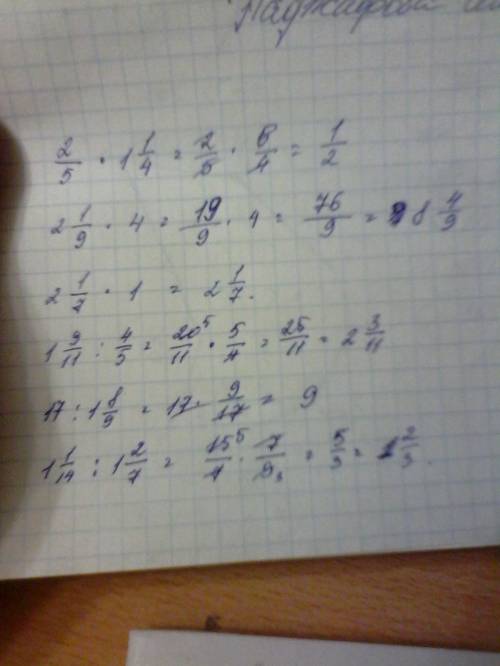 2/5 · 1 1/4 = 2/5 · 5/4 = 1/2
2 1/9 · 4 = 19/9 · 4 = 76/9 = 8 4/9
2 1/7 · 1 = 2 1/7.
1 9/11 : 4/5 = 20⁵/11 · 5/4 = 25/11 = 2 3/11
17 : 1 8/9 = 17 · 9/17 = 9
1 1/14 : 1 2/7 = 15⁵/1 · 7/9₃ = 5/3 = 1 2/3.